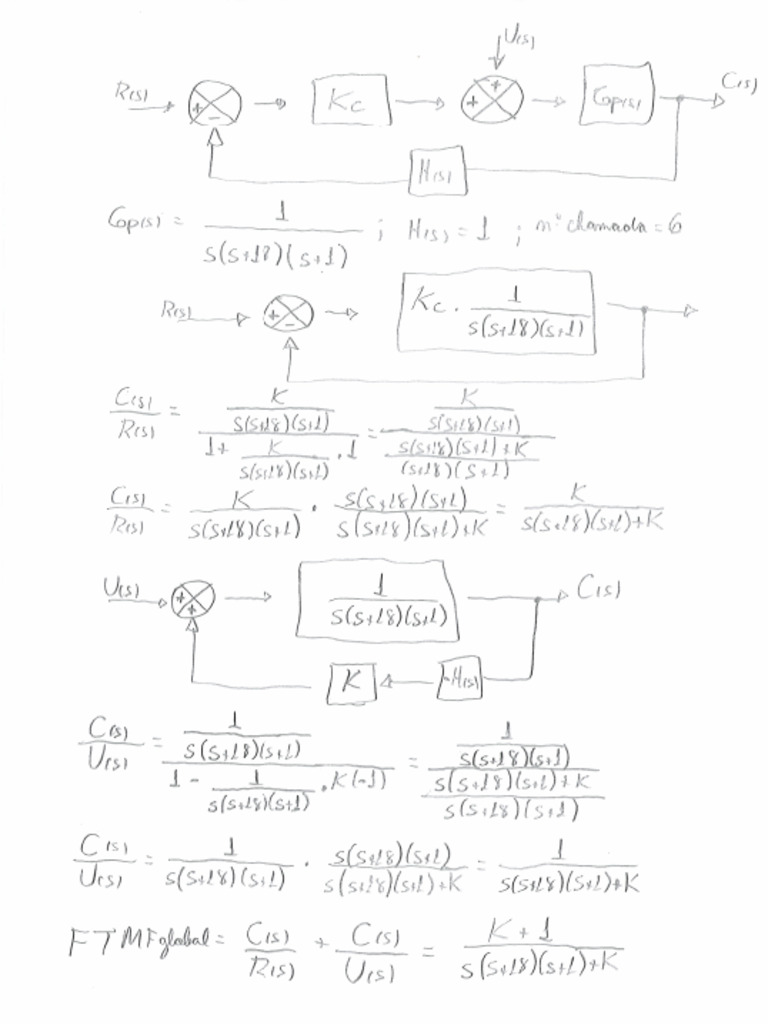 U(s)
R(s) + − Kc + + Gp(s) C(s)
H(s)
Gp(s) = 1 / s(s+18)(s+1) ; H(s) = 1 ; nº chamada = 6
R(s) + − Kc . 1 / s(s+18)(s+1)
C(s)/R(s) = (K / s(s+18)(s+1)) / (1 + K / s(s+18)(s+1) . 1) = (K / s(s+18)(s+1)) / ((s(s+18)(s+1)+K) / (s+18)(s+1))
C(s)/R(s) = K / s(s+18)(s+1) . s(s+18)(s+1) / s(s+18)(s+1)+K = K / s(s+18)(s+1)+K
U(s) + + 1 / s(s+18)(s+1) C(s)
K -H(s)
C(s)/U(s) = (1 / s(s+18)(s+1)) / (1 − 1 / s(s+18)(s+1) . K(-1)) = (1 / s(s+18)(s+1)) / ((s(s+18)(s+1)+K) / s(s+18)(s+1))
C(s)/U(s) = 1 / s(s+18)(s+1) . s(s+18)(s+1) / s(s+18)(s+1)+K = 1 / s(s+18)(s+1)+K
FTMFglobal = C(s)/R(s) + C(s)/U(s) = K+1 / s(s+18)(s+1)+K